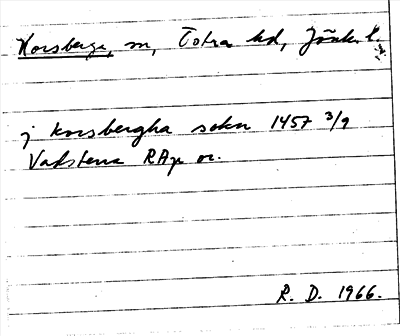 Korsberga, sn, Östra hd, Jönk. l.
j korsbergha sokn 1457 3/9
Vadstena RAp or.
R. D. 1966.